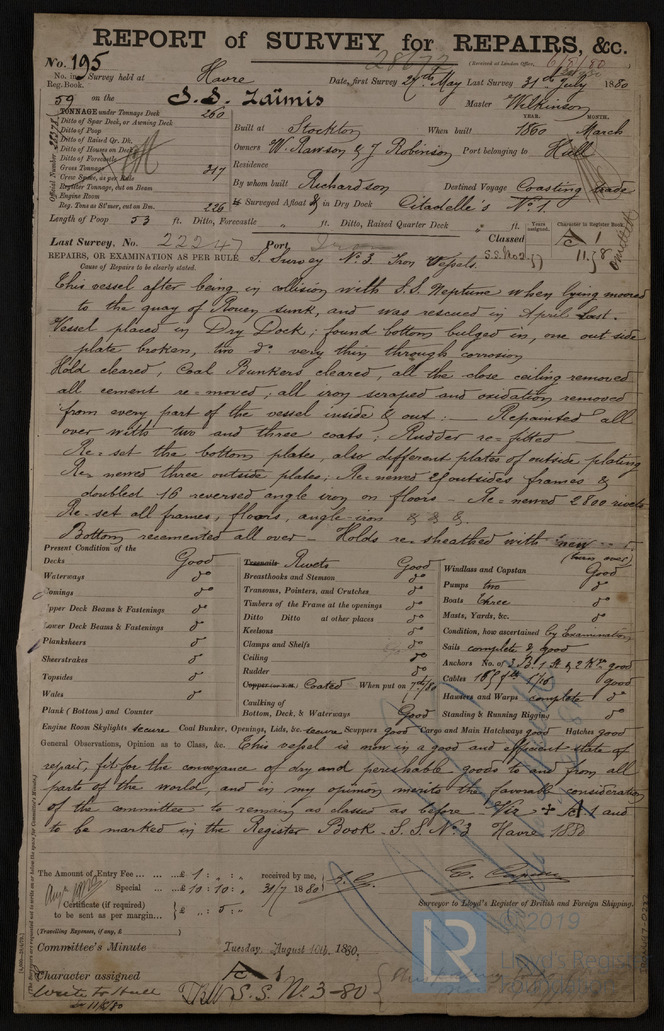 REPORT of SURVEY for REPAIRS, &c.
28672
No. 195
(Received at London Office, 6/8/80
No. in Reg. Book. Survey held at Havre Date, first Survey 24th May Last Survey 31st July 1880
59 on the S.S. Zaïmis Master Wilkinson
TONNAGE under Tonnage Deck 260
Ditto of Spar Deck, or Awning Deck
Ditto of Poop
Ditto of Raised Qr. Dk.
Ditto of Houses on Deck
Ditto of Forecastle
Gross Tonnage 317
Crew Space, as per Rule
Register Tonnage, cut on Beam
Engine Room
Reg. Tons as St'mr, cut on Bm. 226
Official Number
YEAR. MONTH.
Built at Stockton When built 1860 March
Owners W. Rawson & J Robinson Port belonging to Hull
Residence
By whom built Richardson Destined Voyage Coasting trade
is Surveyed Afloat & in Dry Dock Citadelle's No 1.
Length of Poop 53 ft. Ditto, Forecastle " ft. Ditto, Raised Quarter Deck " ft.
Years assigned. Character in Register Book
Classed A 1
11,78
Last Survey, No. 22247 Port, Iron
S.S. No 2
REPAIRS, OR EXAMINATION AS PER RULE S. Survey No 3 Iron Vessels.
Cause of Repairs to be clearly stated.
This vessel after being in collision with S.S. Neptune when lying moored
to the quay of Rouen sunk, and was rescued in April Last.
Vessel placed in Dry Dock; found bottom bulged in, one out side
plate broken, two do very thin through corrosion
Hold cleared, Coal Bunkers cleared, all the close ceiling removed
all cement re-moved; all iron scraped and oxidation removed
from every part of the vessel inside & out: Repainted all
over with two and three coats; Rudder re-fitted
Re-set the bottom plates, also different plates of outside plating
Re-newed three outside plates; Re-newed 21 outsides frames &
doubled 16 reversed angle iron on floors - Re-newed 2800 rivets
Re-set all frames, floors, angle-iron & & &.
Bottom recemented all over - Holds re-sheathed with new
(turn over)
Present Condition of the
Decks Good
Waterways do
Comings do
Upper Deck Beams & Fastenings do
Lower Deck Beams & Fastenings do
Planksheers do
Sheerstrakes do
Topsides do
Wales do
Plank (Bottom) and Counter
Treenails Rivets Good
Breasthooks and Stemson do
Transoms, Pointers, and Crutches do
Timbers of the Frame at the openings do
Ditto Ditto at other places do
Keelsons do
Clamps and Shelfs do
Ceiling do
Rudder do
Copper (or Y.M.) Coated When put on 7th/80
Caulking of
Bottom, Deck, & Waterways Good
Windlass and Capstan Good
Pumps two do
Boats three do
Masts, Yards, &c. do
Condition, how ascertained by Examination
Sails complete & good
Anchors No. of 3 B. 1 St & 2 K. good
Cables good
Hausers and Warps complete do
Standing & Running Rigging do
Engine Room Skylights secure Coal Bunker, Openings, Lids, &c. secure Scuppers good Cargo and Main Hatchways good Hatches good
General Observations, Opinion as to Class, &c. This vessel is now in a good and efficient state of
repair, fit for the conveyance of dry and perishable goods to and from all
parts of the world, and in my opinion merits the favorable consideration
of the committee to remain as classed as before - Viz + A 1 and
to be marked in the Register Book - S.S. No 3 Havre 1880
The Amount of Entry Fee ... £ 1 : " : " received by me,
Special ... £ 10 : 10 : " 31/7 1880
Certificate (if required) £ " : 5 : "
to be sent as per margin...
(Travelling Expenses, if any, £ )
Surveyor to Lloyd's Register of British and Foreign Shipping.
Committee's Minute Tuesday, August 10th, 1880.
Character assigned A 1
S.S. No 3-80
Write to Hull
11/8/80
©2019
Lloyd's Register
Foundation
LR